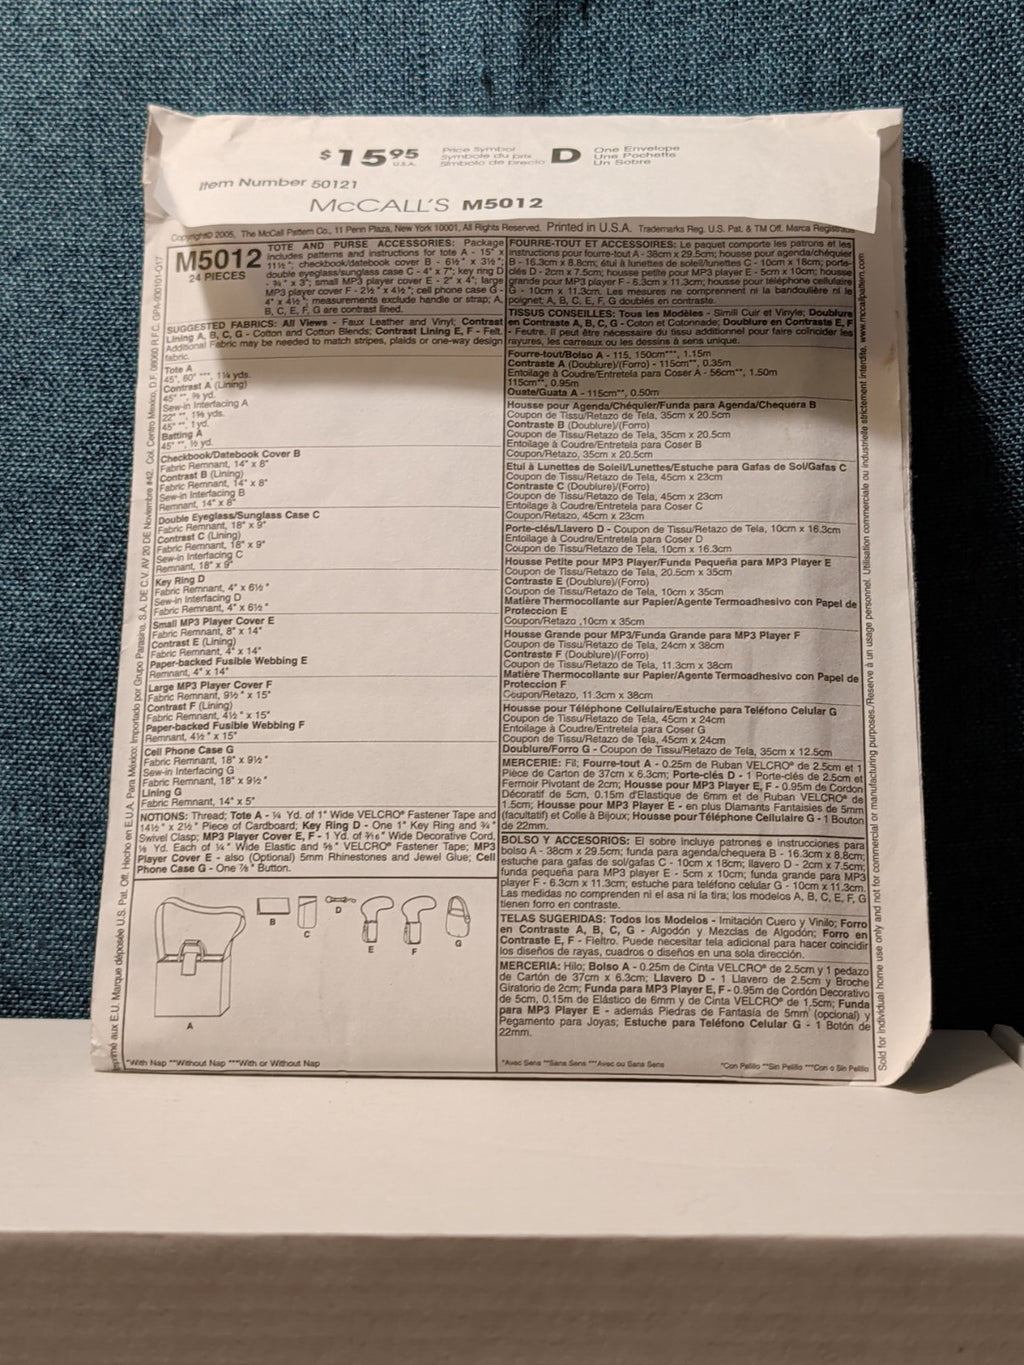 $15.95
U.S.A.
Price Symbol
Symbole du prix
Símbolo de precio
D
One Envelope
Une Pochette
Un Sobre
Item Number 50121
McCALL'S M5012
Copyright© 2005, The McCall Pattern Co., 11 Penn Plaza, New York 10001, All Rights Reserved. Printed in U.S.A. Trademarks Reg. U.S. Pat. & TM Off. Marca Registrada
M5012
24 PIECES
TOTE AND PURSE ACCESSORIES: Package
includes patterns and instructions for tote A - 15" x
11½ "; checkbook/datebook cover B - 6½" x 3½ ";
double eyeglass/sunglass case C - 4" x 7"; key ring D
- ¾ " x 3"; small MP3 player cover E - 2" x 4"; large
MP3 player cover F - 2½ " x 4½ "; cell phone case G -
4" x 4½ "; measurements exclude handle or strap; A,
B, C, E, F, G are contrast lined.
SUGGESTED FABRICS: All Views - Faux Leather and Vinyl; Contrast
Lining A, B, C, G - Cotton and Cotton Blends; Contrast Lining E, F - Felt.
Additional Fabric may be needed to match stripes, plaids or one-way design
fabric.
Tote A
45", 60" ***, 1¼ yds.
Contrast A (Lining)
45" **, ⅜ yd.
Sew-in Interfacing A
22" **, 1⅝ yds.
45" **, 1 yd.
Batting A
45" **, ½ yd.
Checkbook/Datebook Cover B
Fabric Remnant, 14" x 8"
Contrast B (Lining)
Fabric Remnant, 14" x 8"
Sew-in Interfacing B
Remnant, 14" x 8"
Double Eyeglass/Sunglass Case C
Fabric Remnant, 18" x 9"
Contrast C (Lining)
Fabric Remnant, 18" x 9"
Sew-in Interfacing C
Remnant, 18" x 9"
Key Ring D
Fabric Remnant, 4" x 6½ "
Sew-in Interfacing D
Fabric Remnant, 4" x 6½ "
Small MP3 Player Cover E
Fabric Remnant, 8" x 14"
Contrast E (Lining)
Fabric Remnant, 4" x 14"
Paper-backed Fusible Webbing E
Remnant, 4" x 14"
Large MP3 Player Cover F
Fabric Remnant, 9½ " x 15"
Contrast F (Lining)
Fabric Remnant, 4½ " x 15"
Paper-backed Fusible Webbing F
Remnant, 4½ " x 15"
Cell Phone Case G
Fabric Remnant, 18" x 9½ "
Sew-in Interfacing G
Fabric Remnant, 18" x 9½ "
Lining G
Fabric Remnant, 14" x 5"
NOTIONS: Thread; Tote A - ¼ Yd. of 1" Wide VELCRO® Fastener Tape and
14½ " x 2½ " Piece of Cardboard; Key Ring D - One 1" Key Ring and ¾ "
Swivel Clasp; MP3 Player Cover E, F - 1 Yd. of 3⁄16 " Wide Decorative Cord,
⅛ Yd. Each of ¼ " Wide Elastic and ⅝ " VELCRO® Fastener Tape; MP3
Player Cover E - also (Optional) 5mm Rhinestones and Jewel Glue; Cell
Phone Case G - One ⅞ " Button.
A
B
C
D
E
F
G
*With Nap **Without Nap ***With or Without Nap
FOURRE-TOUT ET ACCESSOIRES: Le paquet comporte les patrons et les
instructions pour fourre-tout A - 38cm x 29.5cm; housse pour agenda/chéquier
B - 16.3cm x 8.8cm; étui à lunettes de soleil/lunettes C - 10cm x 18cm; porte-
clés D - 2cm x 7.5cm; housse petite pour MP3 player E - 5cm x 10cm; housse
grande pour MP3 player F - 6.3cm x 11.3cm; housse pour téléphone cellulaire
G - 10cm x 11.3cm. Les mesures ne comprennent ni la bandoulière ni le
poignet; A, B, C, E, F, G doublés en contraste.
TISSUS CONSEILLES: Tous les Modèles - Simili Cuir et Vinyle; Doublure
en Contraste A, B, C, G - Coton et Colonnade; Doublure en Contraste E, F
- Feutre. Il peut être nécessaire du tissu additionnel pour faire coïncider les
rayures, les carreaux ou les dessins à sens unique.
Fourre-tout/Bolso A - 115, 150cm***, 1.15m
Contraste A (Doublure)/(Forro) - 115cm**, 0.35m
Entoilage à Coudre/Entretela para Coser A - 56cm**, 1.50m
115cm**, 0.95m
Ouate/Guata A - 115cm**, 0.50m
Housse pour Agenda/Chéquier/Funda para Agenda/Chequera B
Coupon de Tissu/Retazo de Tela, 35cm x 20.5cm
Contraste B (Doublure)/(Forro)
Coupon de Tissu/Retazo de Tela, 35cm x 20.5cm
Entoilage à Coudre/Entretela para Coser B
Coupon/Retazo, 35cm x 20.5cm
Etui à Lunettes de Soleil/Lunettes/Estuche para Gafas de Sol/Gafas C
Coupon de Tissu/Retazo de Tela, 45cm x 23cm
Contraste C (Doublure)/(Forro)
Coupon de Tissu/Retazo de Tela, 45cm x 23cm
Entoilage à Coudre/Entretela para Coser C
Coupon/Retazo, 45cm x 23cm
Porte-clés/Llavero D - Coupon de Tissu/Retazo de Tela, 10cm x 16.3cm
Entoilage à Coudre/Entretela para Coser D
Coupon de Tissu/Retazo de Tela, 10cm x 16.3cm
Housse Petite pour MP3 Player/Funda Pequeña para MP3 Player E
Coupon de Tissu/Retazo de Tela, 20.5cm x 35cm
Contraste E (Doublure)/(Forro)
Coupon de Tissu/Retazo de Tela, 10cm x 35cm
Matière Thermocollante sur Papier/Agente Termoadhesivo con Papel de
Proteccion E
Coupon/Retazo ,10cm x 35cm
Housse Grande pour MP3/Funda Grande para MP3 Player F
Coupon de Tissu/Retazo de Tela, 24cm x 38cm
Contraste F (Doublure)/(Forro)
Coupon de Tissu/Retazo de Tela, 11.3cm x 38cm
Matière Thermocollante sur Papier/Agente Termoadhesivo con Papel de
Proteccion F
Coupon/Retazo, 11.3cm x 38cm
Housse pour Téléphone Cellulaire/Estuche para Teléfono Celular G
Coupon de Tissu/Retazo de Tela, 45cm x 24cm
Entoilage à Coudre/Entretela para Coser G
Coupon de Tissu/Retazo de Tela, 45cm x 24cm
Doublure/Forro G - Coupon de Tissu/Retazo de Tela, 35cm x 12.5cm
MERCERIE: Fil; Fourre-tout A - 0.25m de Ruban VELCRO® de 2.5cm et 1
Pièce de Carton de 37cm x 6.3cm; Porte-clés D - 1 Porte-clés de 2.5cm et
Fermoir Pivotant de 2cm; Housse pour MP3 Player E, F - 0.95m de Cordon
Décoratif de 5cm, 0.15m d'Elastique de 6mm et de Ruban VELCRO® de
1.5cm; Housse pour MP3 Player E - en plus Diamants Fantaisies de 5mm
(facultatif) et Colle à Bijoux; Housse pour Téléphone Cellulaire G - 1 Bouton
de 22mm.
BOLSO Y ACCESORIOS: El sobre incluye patrones e instrucciones para
bolso A - 38cm x 29.5cm; funda para agenda/chequera B - 16.3cm x 8.8cm;
estuche para gafas de sol/gafas C - 10cm x 18cm; llavero D - 2cm x 7.5cm;
funda pequeña para MP3 player E - 5cm x 10cm; funda grande para MP3
player F - 6.3cm x 11.3cm; estuche para teléfono celular G - 10cm x 11.3cm.
Las medidas no comprenden ni el asa ni la tira; los modelos A, B, C, E, F, G
tienen forro en contraste.
TELAS SUGERIDAS: Todos los Modelos - Imitación Cuero y Vinilo; Forro
en Contraste A, B, C, G - Algodón y Mezclas de Algodón; Forro en
Contraste E, F - Fieltro. Puede necesitar tela adicional para hacer coincidir
los diseños de rayas, cuadros o diseños en una sola dirección.
MERCERIA: Hilo; Bolso A - 0.25m de Cinta VELCRO® de 2.5cm y 1 pedazo
de Cartón de 37cm x 6.3cm; Llavero D - 1 Llavero de 2.5cm y Broche
Giratorio de 2cm; Funda para MP3 Player E, F - 0.95m de Cordón Decorativo
de 5cm, 0.15m de Elástico de 6mm y de Cinta VELCRO® de 1.5cm; Funda
para MP3 Player E - además Piedras de Fantasía de 5mm (opcional) y
Pegamento para Joyas; Estuche para Teléfono Celular G - 1 Botón de
22mm.
*Avec Sens **Sans Sens ***Avec ou Sans Sens
*Con Pelillo **Sin Pelillo ***Con o Sin Pelillo
Imprimé aux E.U. Marque déposée U.S. Pat. Off. Hecho en E.U.A. Para México: Importado por Grupo Parisina, S.A. DE C.V. AV 20 DE Noviembre #42, Col. Centro Mexico, D.F. 06060 R.F.C. GPA-930101-Q17
Sold for individual home use only and not for commercial or manufacturing purposes./Réservé à un usage personnel. Utilisation commerciale ou industrielle strictement interdite. www.mccallpattern.com